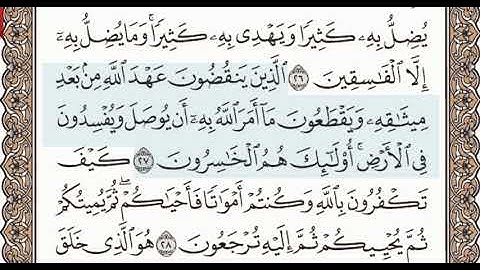 يُضِلُّ بِهِۦ كَثِيرًا وَيَهْدِى بِهِۦ كَثِيرًا ۚ وَمَا يُضِلُّ بِهِۦٓ
إِلَّا ٱلْفَٰسِقِينَ ٢٦ ٱلَّذِينَ يَنقُضُونَ عَهْدَ ٱللَّهِ مِنۢ بَعْدِ
مِيثَٰقِهِۦ وَيَقْطَعُونَ مَآ أَمَرَ ٱللَّهُ بِهِۦٓ أَن يُوصَلَ وَيُفْسِدُونَ
فِى ٱلْأَرْضِ ۚ أُو۟لَٰٓئِكَ هُمُ ٱلْخَٰسِرُونَ ٢٧ كَيْفَ
تَكْفُرُونَ بِٱللَّهِ وَكُنتُمْ أَمْوَٰتًا فَأَحْيَٰكُمْ ۖ ثُمَّ يُمِيتُكُمْ
ثُمَّ يُحْيِيكُمْ ثُمَّ إِلَيْهِ تُرْجَعُونَ ٢٨ هُوَ ٱلَّذِى خَلَقَ